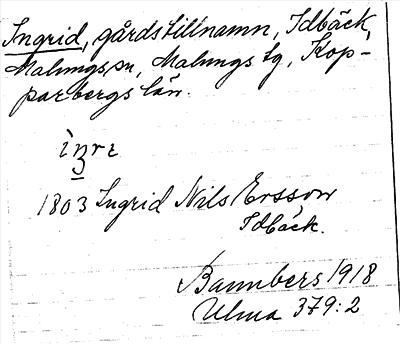 Ingrid, gårdstillnamn, Idbäck,
Malungs sn, Malungs tg, Kop-
parbergs län.
1803 Ingrid Nils Ersson
Idbäck.
Bannbers 1918
Ulma 379:2